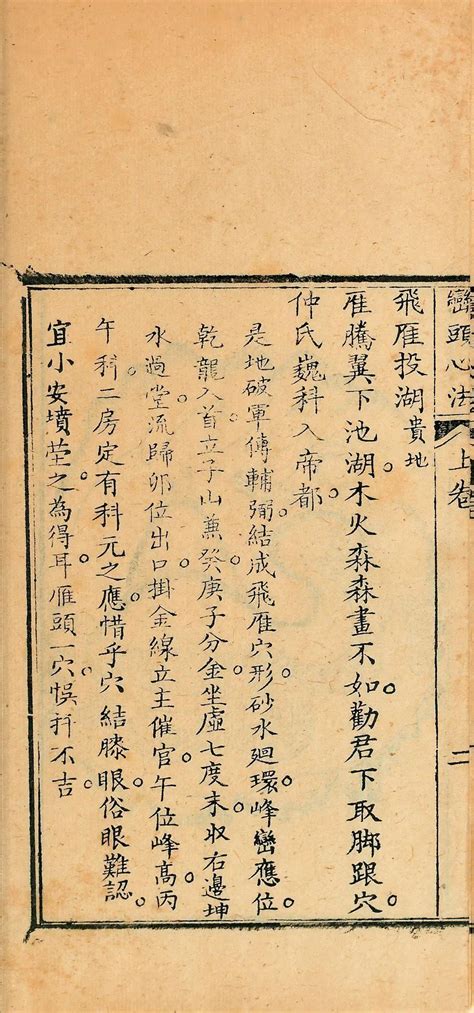 巒頭心法 上卷 二
飛雁投湖貴地
雁騰翼下池湖木火森森畫不如。勸君下取脚跟穴。
仲氏巍科入帝都。
是地破軍傳輔弼。結成飛雁穴形。砂水廻環。峰巒應位。
乾龍入首立子山兼癸庚子分金。坐虛七度末。収右邊坤
水過堂。流歸卯位出口。掛金線立主催官。午位峰高。丙
午科二房定有科元之應。惜乎穴結膝眼。俗眼難認。
宜小安墳塋之。為得耳。雁頭一穴悞扦不吉。